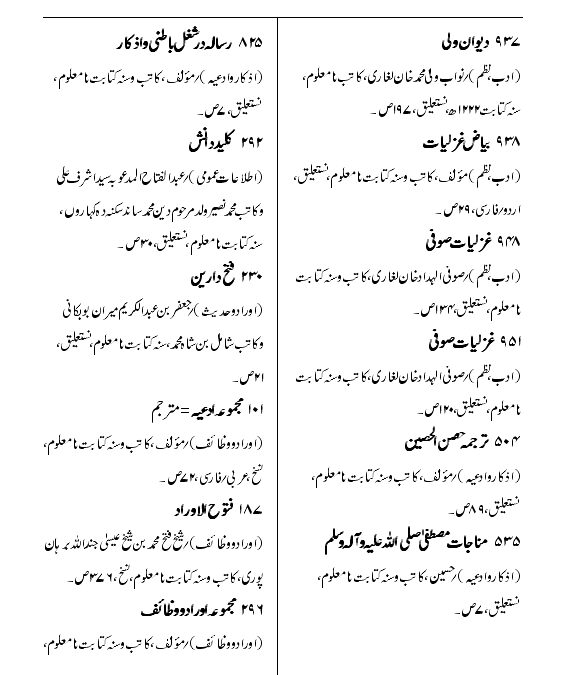 ۹۳۷ دیوان ولی
(ادب،نظم)؍نواب ولی محمد خان لغاری، کاتب نامعلوم،
سنہ کتابت ۱۲۲۲ھ،نستعلیق، ۱۹۷ص۔
۹۳۸ بیاض غزلیات
(ادب،نظم)؍مؤلف، کاتب وسنہ کتابت نامعلوم،نستعلیق،
اردو؍فارسی، ۲۹ص۔
۹۴۸ غزلیات صوفی
(ادب،نظم)؍صوفی الہداد خان لغاری،کاتب وسنہ کتابت
نامعلوم،نستعلیق،۱۳۴ص۔
۹۵۱ غزلیات صوفی
(ادب،نظم)؍صوفی الہداد خان لغاری،کاتب وسنہ کتابت
نامعلوم،نستعلیق،۱۲۰ص۔
۵۰۴ ترجمہ حصن الحصین
(اذکار وادعیہ)؍مؤلف، کاتب وسنہ کتابت نامعلوم،
نستعلیق،۸۹ص۔
۵۳۵ مناجات مصطفیٰ صلی اللہ علیہ وآلہ وسلم
(اذکار وادعیہ)؍حسین، کاتب وسنہ کتابت نامعلوم،
نستعلیق،۷ص۔
۸۲۵ رسالہ در شغل باطنی و اذکار
(اذکار وادعیہ)؍مؤلف، کاتب وسنہ کتابت نامعلوم،
نستعلیق، ۷ص۔
۲۹۲ کلید دانش
(اطلاعات عمومی)؍عبدالفتاح المدعو بہ سید اشرف علی
و کاتب محمد نصیر ولد مرحوم دین محمد ساند سکنہ دہ کہارون،
سنہ کتابت نامعلوم،نستعلیق، ۳۰ص۔
۲۳۰ فتح دارین
(اوراد و حدیث)؍جعفر بن عبدالکریم میران بوبکانی
و کاتب شامل بن شاہ محمد،سنہ کتابت نامعلوم،نستعلیق،
۲۱ص۔
۱۰۱ مجموعہ ادعیہ = مترجم
(اوراد و وظائف)؍مؤلف، کاتب وسنہ کتابت نامعلوم،
نسخ،عربی؍فارسی،۷۲ص۔
۱۸۷ فتوح الاوراد
(اوراد و وظائف)؍شیخ فتح محمد بن شیخ عیسیٰ جنداللہ برہان
پوری، کاتب وسنہ کتابت نامعلوم، نسخ، ۳۷۶ص۔
۲۹۶ مجموعہ اوراد و وظائف
(اوراد و وظائف)؍مؤلف، کاتب وسنہ کتابت نامعلوم،